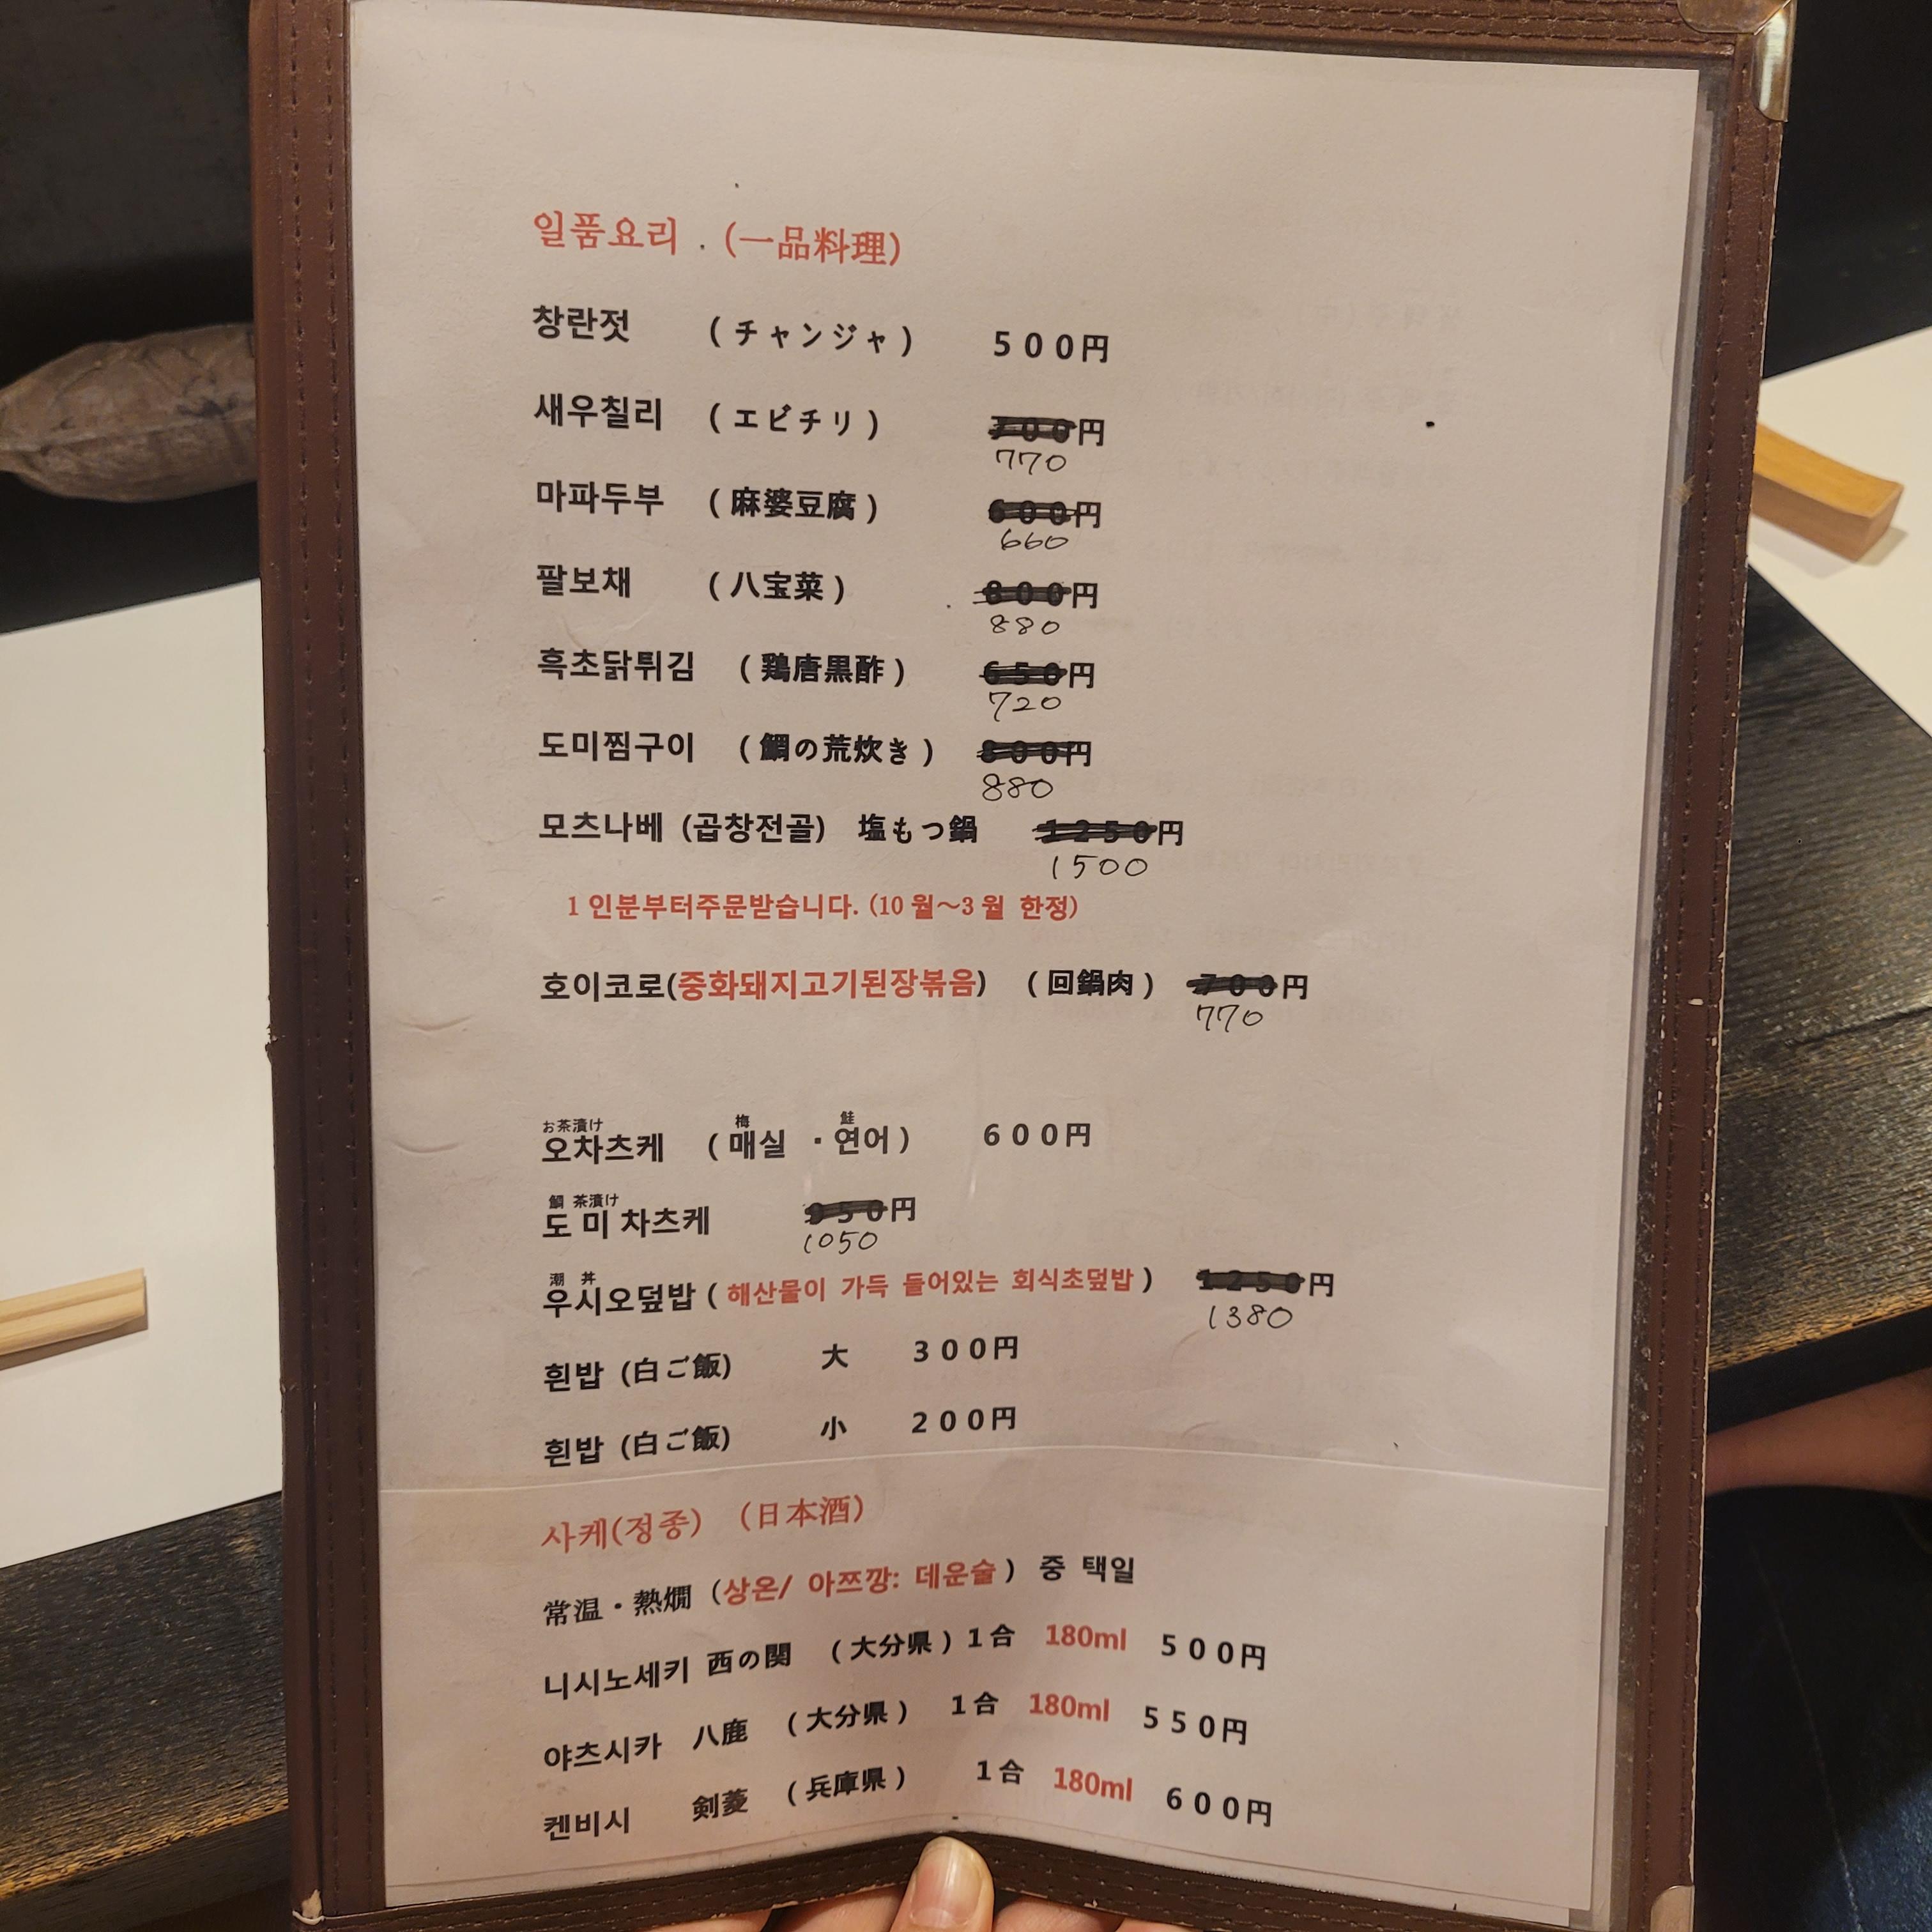 일품요리 . (一品料理)
창란젓 (チャンジャ) 500円
새우칠리 (エビチリ) 700円
770
마파두부 (麻婆豆腐) 600円
660
팔보채 (八宝菜) 800円
880
흑초닭튀김 (鶏唐黒酢) 650円
720
도미찜구이 (鯛の荒炊き) 800円
880
모츠나베 (곱창전골) 塩もつ鍋 1250円
1500
1 인분부터주문받습니다. (10 월～3 월 한정)
호이코로(중화돼지고기된장볶음) (回鍋肉) 700円
770
お茶漬け 梅 鮭
오차츠케 (매실 ・연어) 600円
鯛 茶漬け
도 미 차츠케 950円
1050
潮 丼
우시오덮밥 (해산물이 가득 들어있는 회식초덮밥) 1250円
1380
흰밥 (白ご飯) 大 300円
흰밥 (白ご飯) 小 200円
사케(정종) (日本酒)
常温・熱燗 (상온/ 아쯔깡: 데운술) 중 택일
니시노세키 西の関 (大分県) 1合 180ml 500円
야츠시카 八鹿 (大分県) 1合 180ml 550円
켄비시 剣菱 (兵庫県) 1合 180ml 600円